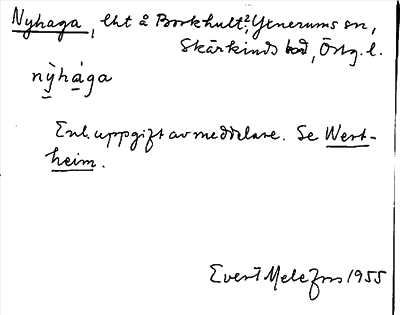 Nyhaga, lht å Borkhult², Yxnerums sn,
Skärkinds hd, Östg. l.
nỳhága
Enl. uppgift av meddelare. Se West-
heim.
Evert Melefors 1955